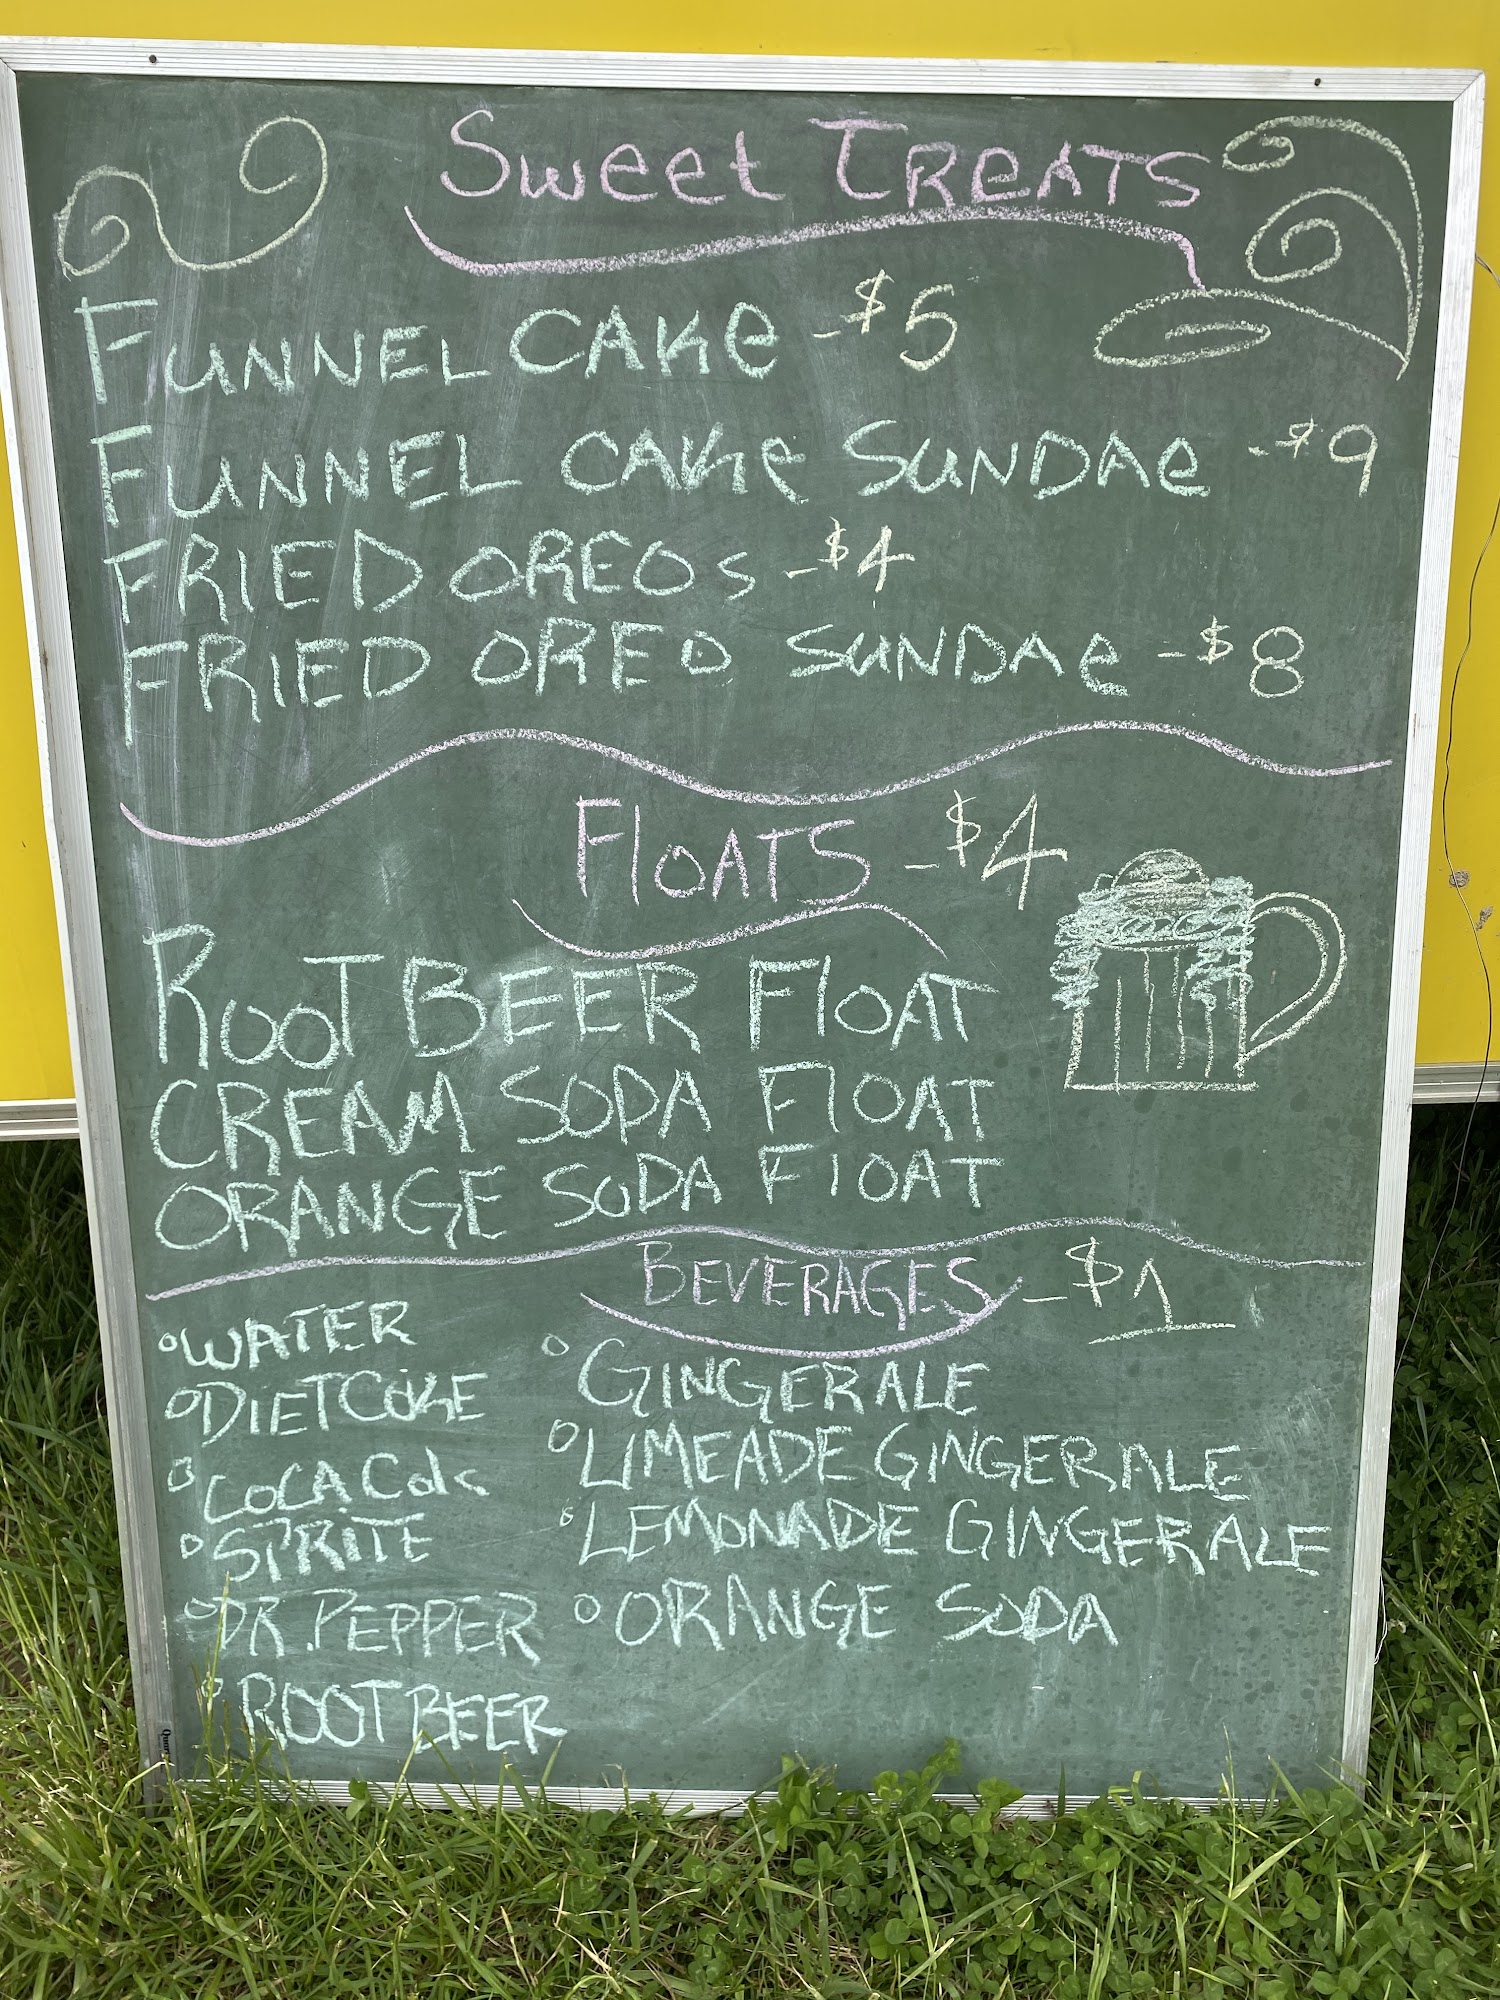 Sweet Treats
Funnel Cake - $5
Funnel Cake Sundae - $9
Fried Oreos - $4
Fried Oreo Sundae - $8
Floats - $4
Root Beer Float
Cream Soda Float
Orange Soda Float
Beverages - $1
Water
Diet Coke
Coca Cola
Sprite
Dr. Pepper
Root Beer
Gingerale
Limeade Gingerale
Lemonade Gingerale
Orange Soda